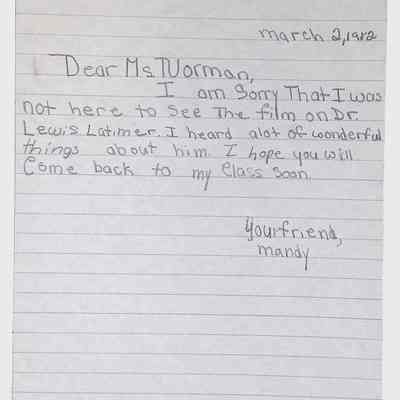 march 2, 1982
Dear Ms. Norman,
I am Sorry That I was
not here to See The film on Dr.
Lewis Latimer. I heard alot of wonderful
things about him. I hope you will
Come back to my Class Soon.
Your friend,
mandy